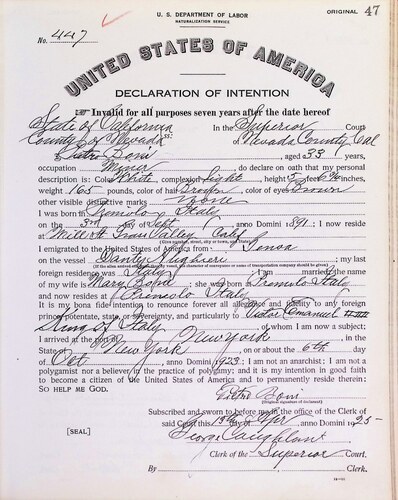 U. S. DEPARTMENT OF LABOR
NATURALIZATION SERVICE
ORIGINAL 47
No. 447
UNITED STATES OF AMERICA
DECLARATION OF INTENTION
Invalid for all purposes seven years after the date hereof
State of California
In the Superior Court
County of Nevada ss: of Nevada County Cal
I, Pietro Boni, aged 33 years,
occupation Miner, do declare on oath that my personal
description is: Color White, complexion Light, height 5 feet 6 inches,
weight 165 pounds, color of hair Brown, color of eyes Brown
other visible distinctive marks None
I was born in Italy
on the 3rd day of Sept, anno Domini 1891; I now reside
at Mill St Grass Valley Calif
(Give number, street, city or town, and State.)
I emigrated to the United States of America from Genoa
on the vessel Danty Alighieri; my last
foreign residence was Italy; I am married; the name
of my wife is Mary Boni; she was born in Italy
and now resides at Italy
It is my bona fide intention to renounce forever all allegiance and fidelity to any foreign
prince, potentate, state, or sovereignty, and particularly to Victor Emanuel III
King of Italy, of whom I am now a subject;
I arrived at the port of New York, in the
State of New York, on or about the 6th day
of Oct, anno Domini 1923; I am not an anarchist; I am not a
polygamist nor a believer in the practice of polygamy; and it is my intention in good faith
to become a citizen of the United States of America and to permanently reside therein:
SO HELP ME GOD.
Pietro Boni
(Original signature of declarant.)
Subscribed and sworn to before me in the office of the Clerk of
said Court this 18th day of Apr, anno Domini 1925
[SEAL]
George Caughlan
Clerk of the Superior Court.
By , Clerk.